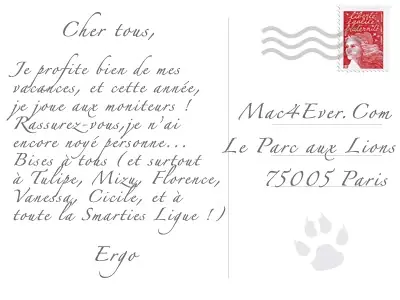 Cher tous,
Je profite bien de mes
vacances, et cette année,
je joue aux moniteurs !
Rassurez-vous,je n'ai
encore noyé personne...
Bises à tous (et surtout
à Tulipe, Mizu, Florence,
Vanessa, Cicile, et à
toute la Smarties Ligue !)
Ergo
Liberté
égalité
fraternité
Mac4Ever.Com
Le Parc aux Lions
75005 Paris